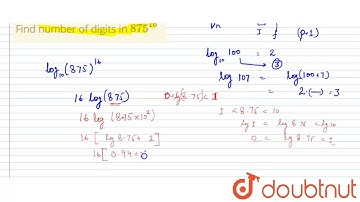 Find number of digits in 875¹⁶
log₁₀(875)¹⁶
16 log(875)
16 log (8.75×10²)
16 [ log 8.75 + 2
16[ 0.94+2
0<log(8.75)<1
I f (p+1)
log₁₀ 100 = 2
③
log 107 = log(100+7)
= 2.(—) = 3
1 < 8.75 < 10
log 1 = log 8.75 = log 10
0 = log 8.75 = 1
doubtnut